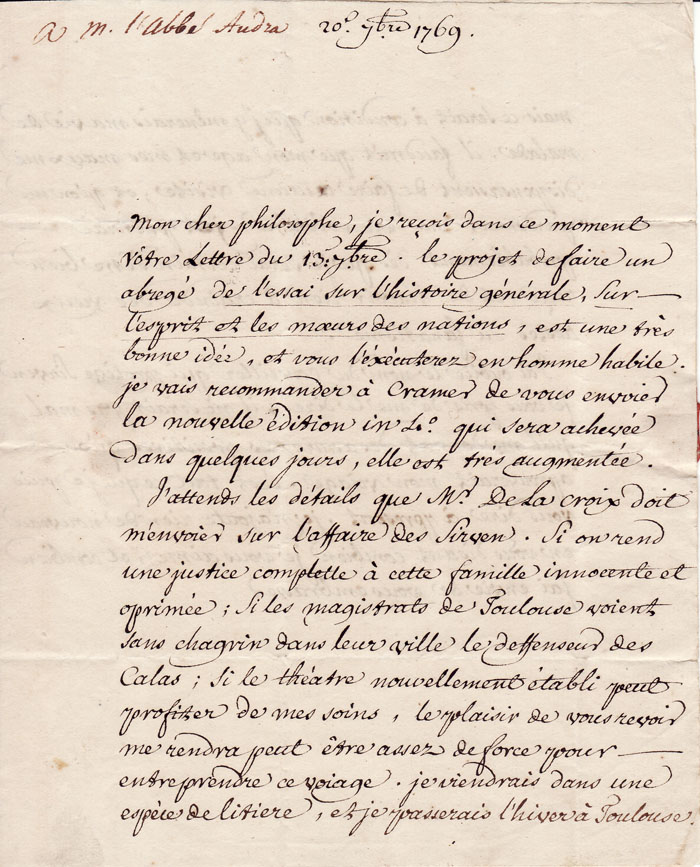 a M. l'Abbé Audra 20e. 7bre 1769.
Mon cher philosophe, je reçois dans ce moment
vôtre Lettre du 13. 7bre. le projet de faire un
abregé de l'essai sur l'histoire générale, sur
l'esprit et les mœurs des nations, est une très
bonne idée, et vous l'éxécuterez en homme habile.
je vais recommander à Cramer de vous envoier
la nouvelle édition in 4.o qui sera achevée
dans quelques jours, elle est très augmentée.
J'attends les détails que Mr. De La Croix doit
m'envoier sur l'affaire des Sirven. Si on rend
une justice complette à cette famille innocente et
oprimée; Si les magistrats de Toulouse voient
sans chagrin dans leur ville le deffenseur des
Calas; si le théatre nouvellement établi peut
profiter de mes soins, le plaisir de vous revoir
me rendra peut être assez de force pour
entreprendre ce voiage. je viendrais dans une
espèce de litiere, et je passerais l'hiver à Toulouse.